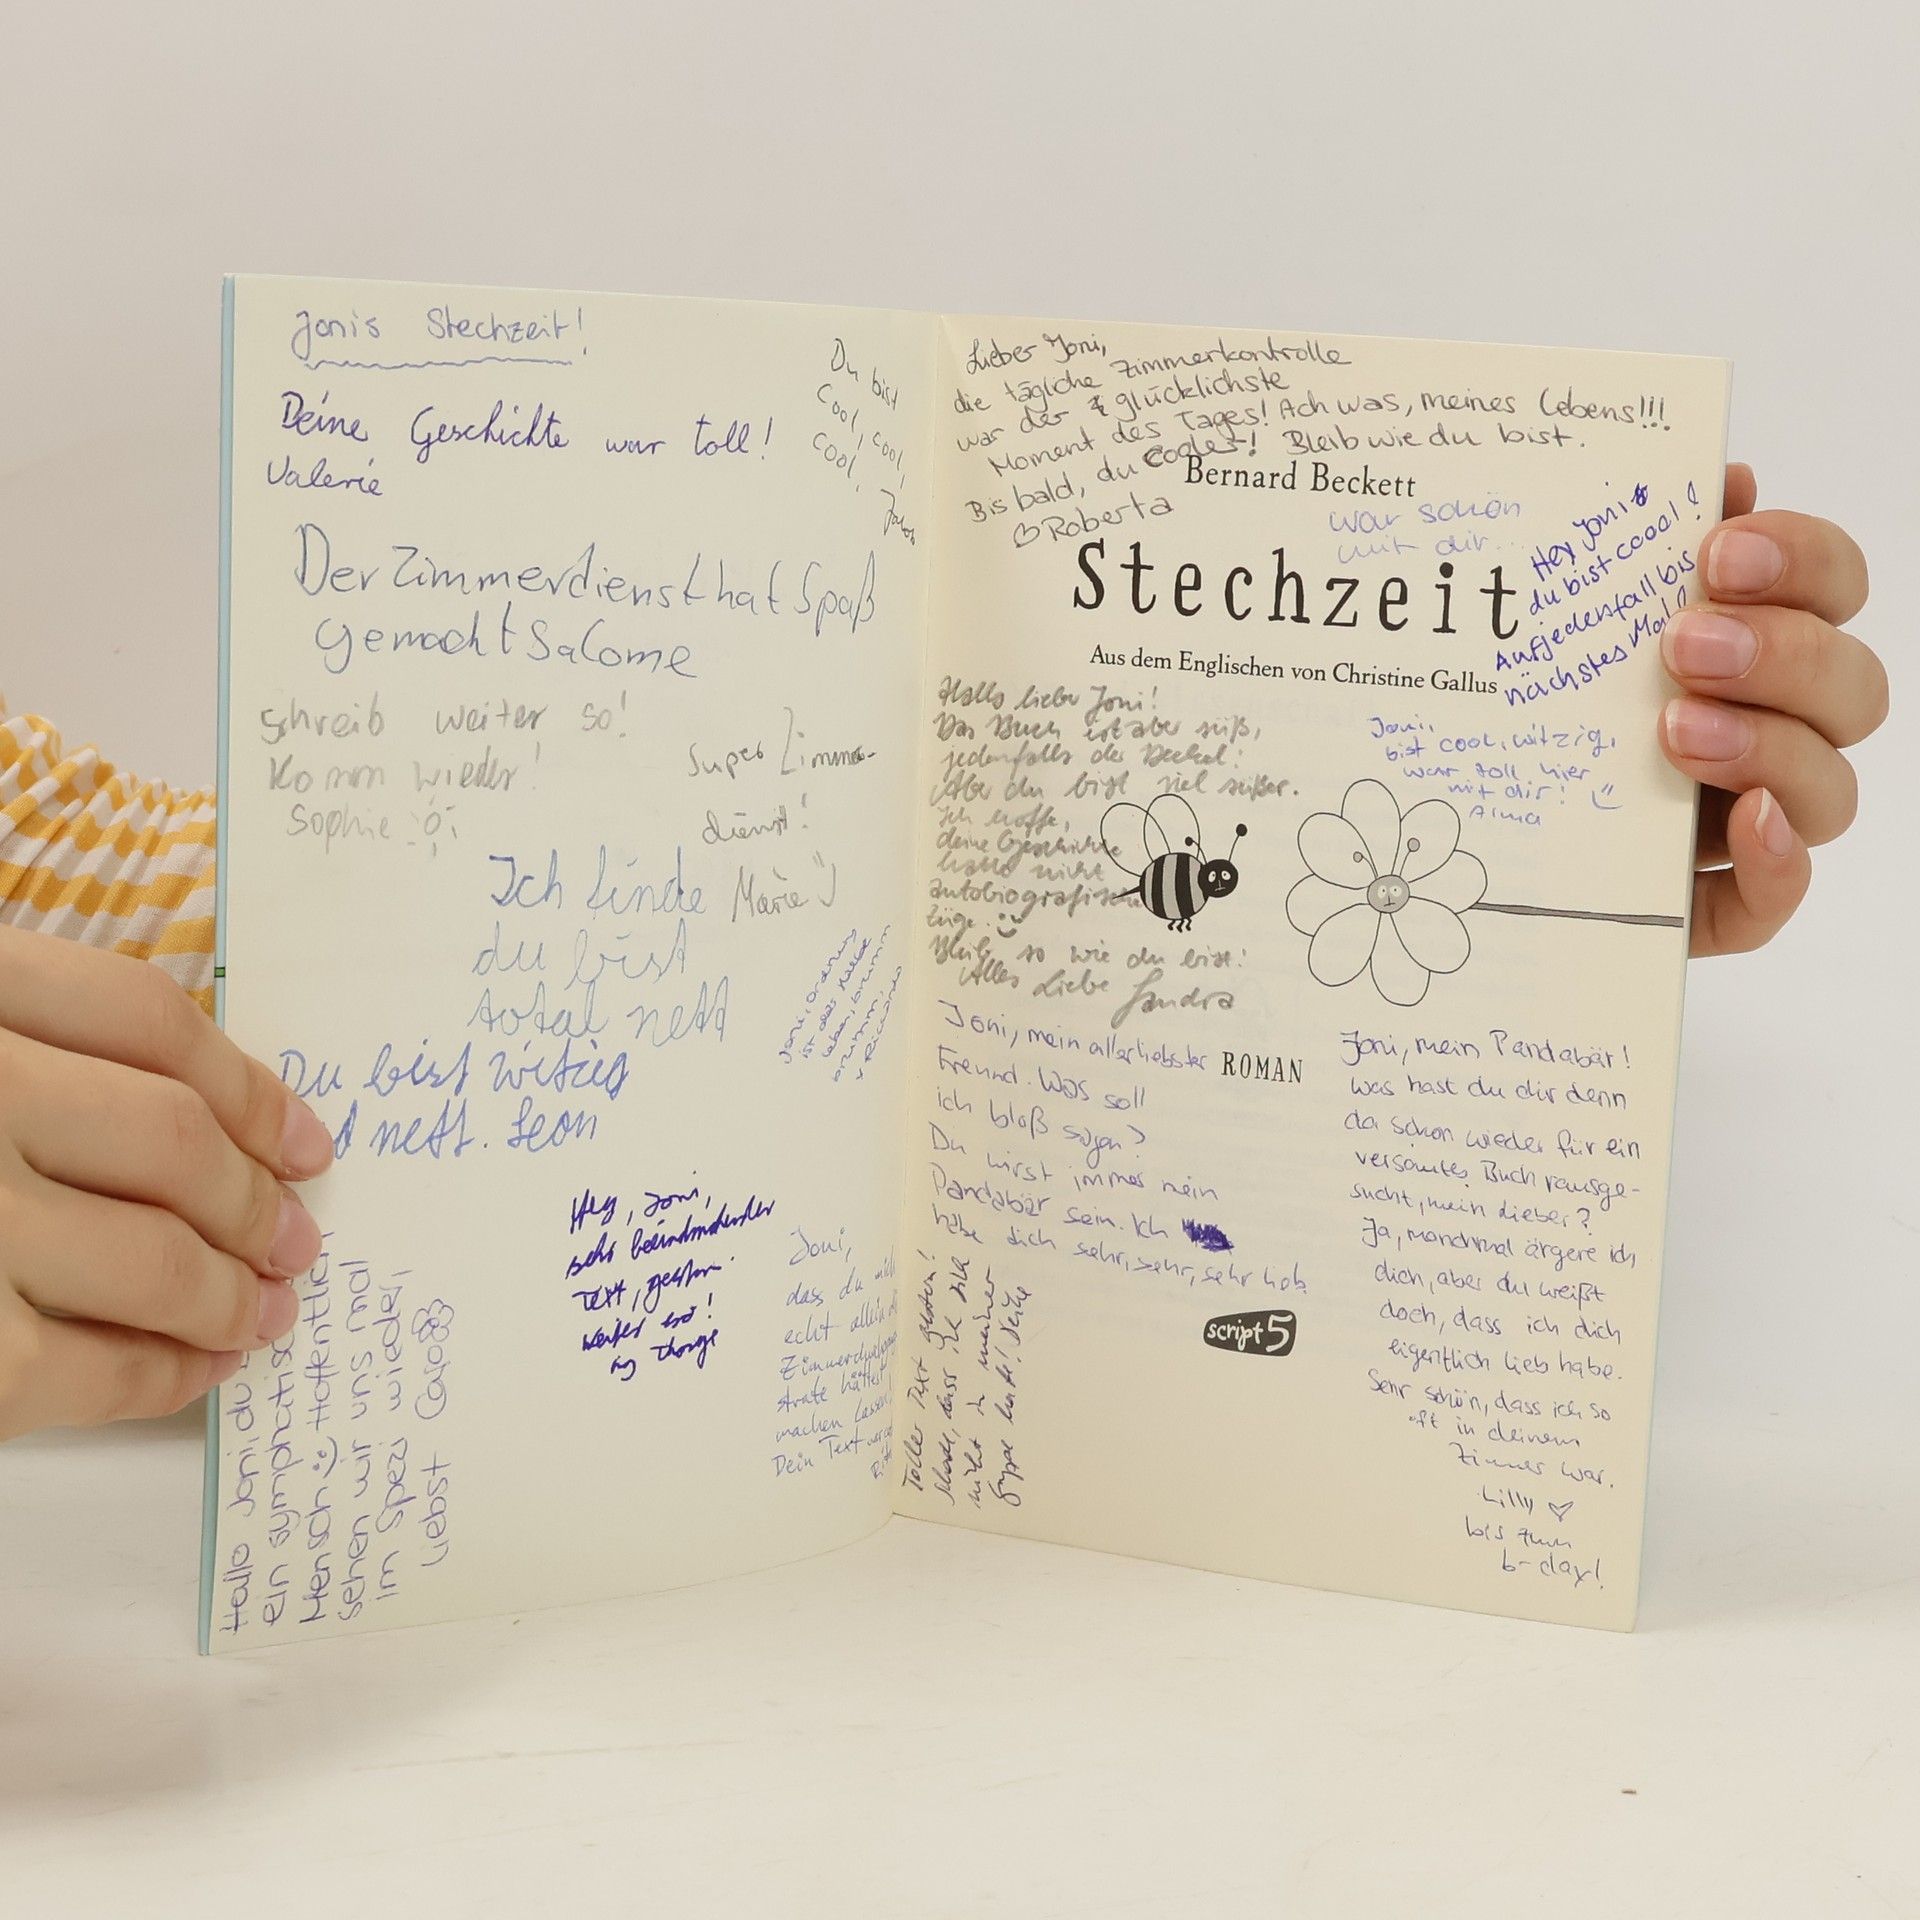 Jonis Stechzeit!
Deine Geschichte war toll!
Valerie
Du bist
cool, cool,
cool,
Der Zimmerdienst hat Spaß
gemacht Salome
schreib weiter so!
Komm wieder!
Sophie
Super Zimmer-
dienst!
Marie
Ich finde
du bist
total nett
Du bist witzig
nett. Leon
Joni, Ordnung
ist das halbe
Leben, brumm
brumm,
x Riccardo
Hey, Joni,
sehr beeindruckender
Text, gestern.
weiter so!
Joni,
dass du mich
echt allein
machen lassen!
Dein Text war
Hallo Joni, du
ein sympathisch
Mensch Hoffentlich
sehen wir uns mal
im Spezi wieder,
Liebst Caro
Lieber Joni,
die tägliche Zimmerkontrolle
war der glücklichste
Moment des Tages! Ach was, meines Lebens!!!
Bis bald, du Cooler! Bleib wie du bist.
♡ Roberta
Bernard Beckett
war schön
mit dir...
Stechzeit
Hey Joni
du bist coool!
Aufjedenfall bis
nächstes Mal!
Aus dem Englischen von Christine Gallus
Hallo lieber Joni!
Das Buch ist aber süß,
jedenfalls der Deckel!
Aber du bist viel süßer.
Ich hoffe,
deine Geschichte
hatte nicht
autobiografische
Züge.
Bleib so wie du bist!
Alles Liebe Sandra
Joni,
bist cool, witzig,
war toll hier
mit dir!
Alma
Joni, mein allerliebster
Freund. Was soll
ich bloß sagen?
Du wirst immer mein
Pandabär sein. Ich
habe dich sehr, sehr, sehr lieb.
ROMAN
script5
Toller Text gestern!
Schade, dass ich dich
nicht in meiner
Gruppe hatte!
Joni, mein Pandabär!
Was hast du dir denn
da schon wieder für ein
versautes Buch rausge-
sucht, mein Lieber?
Ja, manchmal ärgere ich
dich, aber du weißt
doch, dass ich dich
eigentlich lieb habe.
Sehr schön, dass ich so
oft in deinem
Zimmer war.
Lilly ♡
bis zum
b-day!